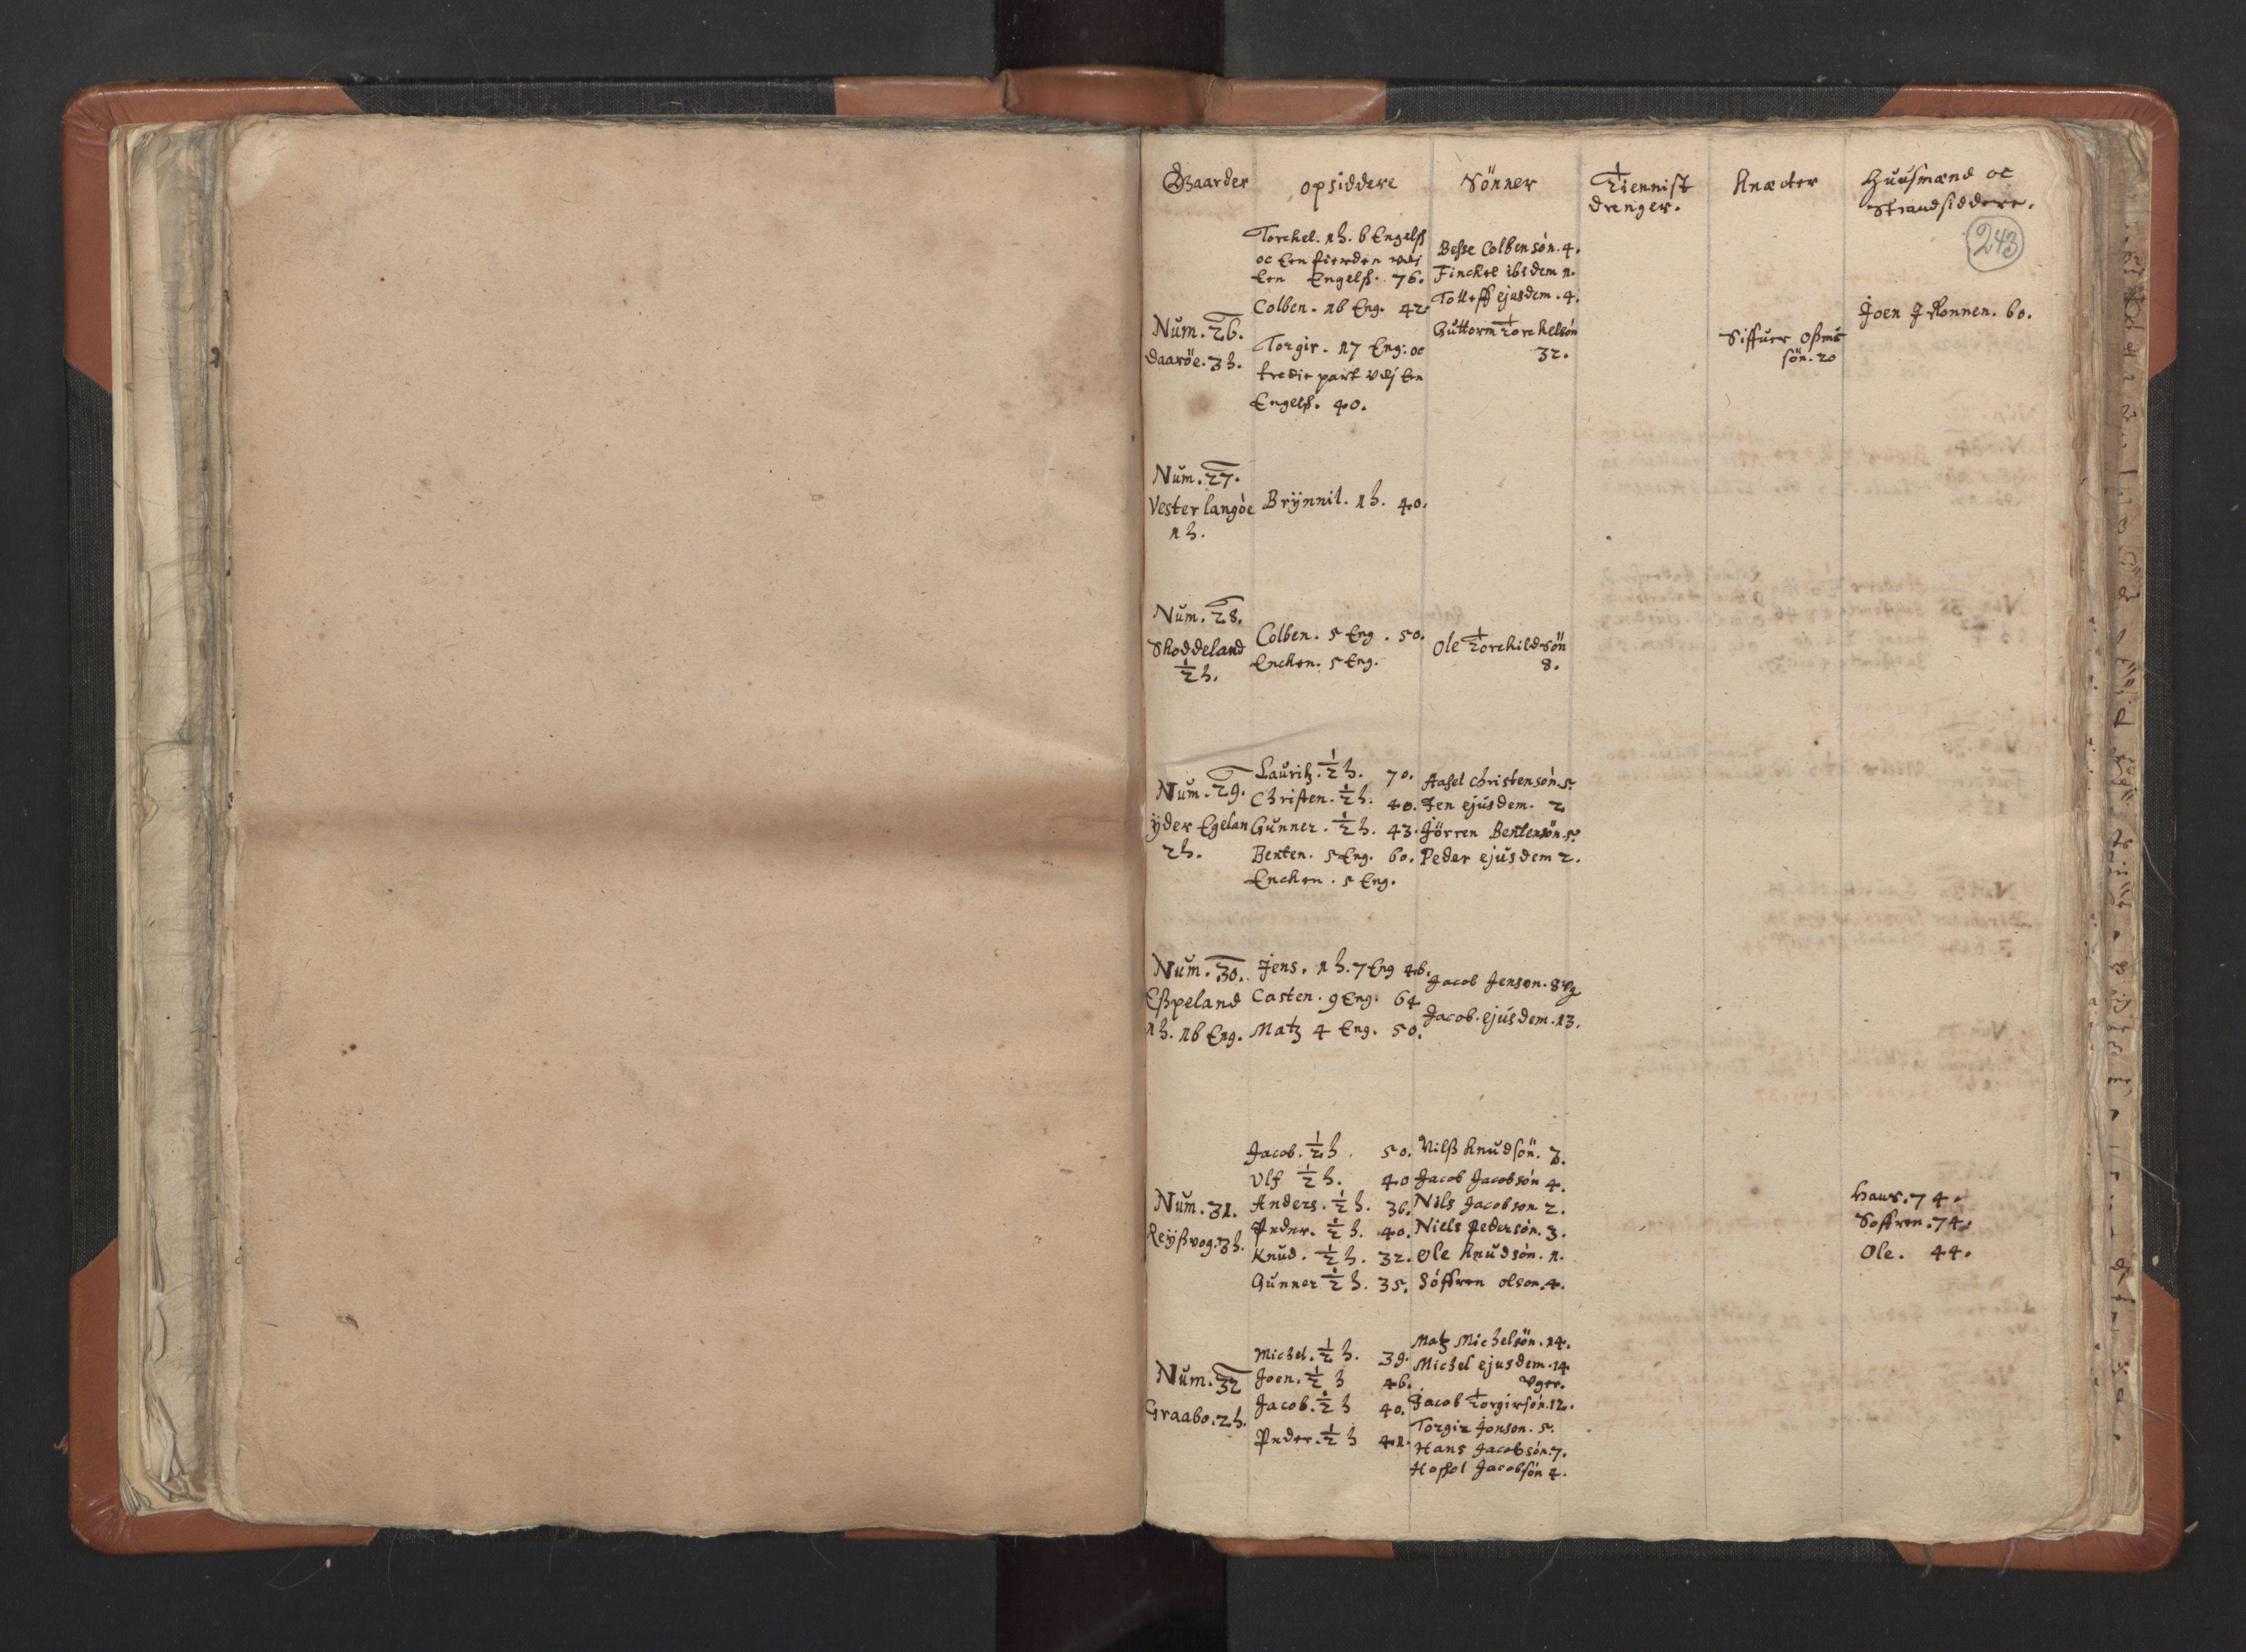 Gaarder opsiddere Sönner Tiennist drenger. Knæcter Huusmænd oc Strandsiddere.
243
Torchel. 1 h. 6 Engelß
oc een fierden udj
een Engelß. 76.
Colben. 16 Eng. 42
Torgir. 17 Eng. oc
tredie part udj een
Engelß. 40.
Besse Colbensön. 4.
Finckel ibidem 1.
Tolleff ejusdem. 4.
Guttorm Torchelsön
32.
Num. 26.
Daaröe. 3 h.
Siffuer Oßmu
sön. 20
Joen J Ronnen. 60.
Num. 27.
Vester langöe
1 h.
Brÿnnil. 1 h. 40.
Num. 28.
Skoddeland
½ h.
Colben. 5 Eng. 50.
Encken. 5 Eng.
Ole Torchildsön
8.
Num. 29.
ÿder Egelan
2 h.
Lauritz. ½ h. 70.
Christen. ½ h. 40.
Gunner. ½ h. 43.
Benten. 5 Eng. 60.
Encken. 5 Eng.
Aasel Christensön. 5.
Jen ejusdem. 2
Jörren Bentensön. 5.
Peder ejusdem 2.
Num. 30.
Eßpeland
1 h. 16 Eng.
Jens. 1 h. 7 Eng 46.
Casten. 9 Eng. 64
Matz 4 Eng. 50.
Jacob Jenson. 8 ug
Jacob. ejusdem. 13.
Num. 31.
Reÿßvog. 3 h.
Jacob. ½ h. 50.
Vlf ½ h. 40
Anders. ½ h. 36.
Peder. ½ h. 40.
Knud. ½ h. 32.
Gunner ½ h. 35.
Nilß Knudsön. 3.
Jacob Jacobsön 4.
Nils Jacobson 2.
Niels Pedersön. 3.
Ole Knudsön. 1.
Söffren olson. 4.
Hans. 74.
Soffren. 74.
Ole. 44.
Num. 32
Graabo. 2 h.
Michel. ½ h. 39.
Joen. ½ h 46.
Jacob. ½ h 40.
Peder. ½ h 41.
Matz Michelsön. 14.
Michel ejusdem. 14
Vger.
Jacob Torgirsön. 12.
Torgir Jonson. 5.
Hans Jacobsön. 7.
Jacobsön 4.